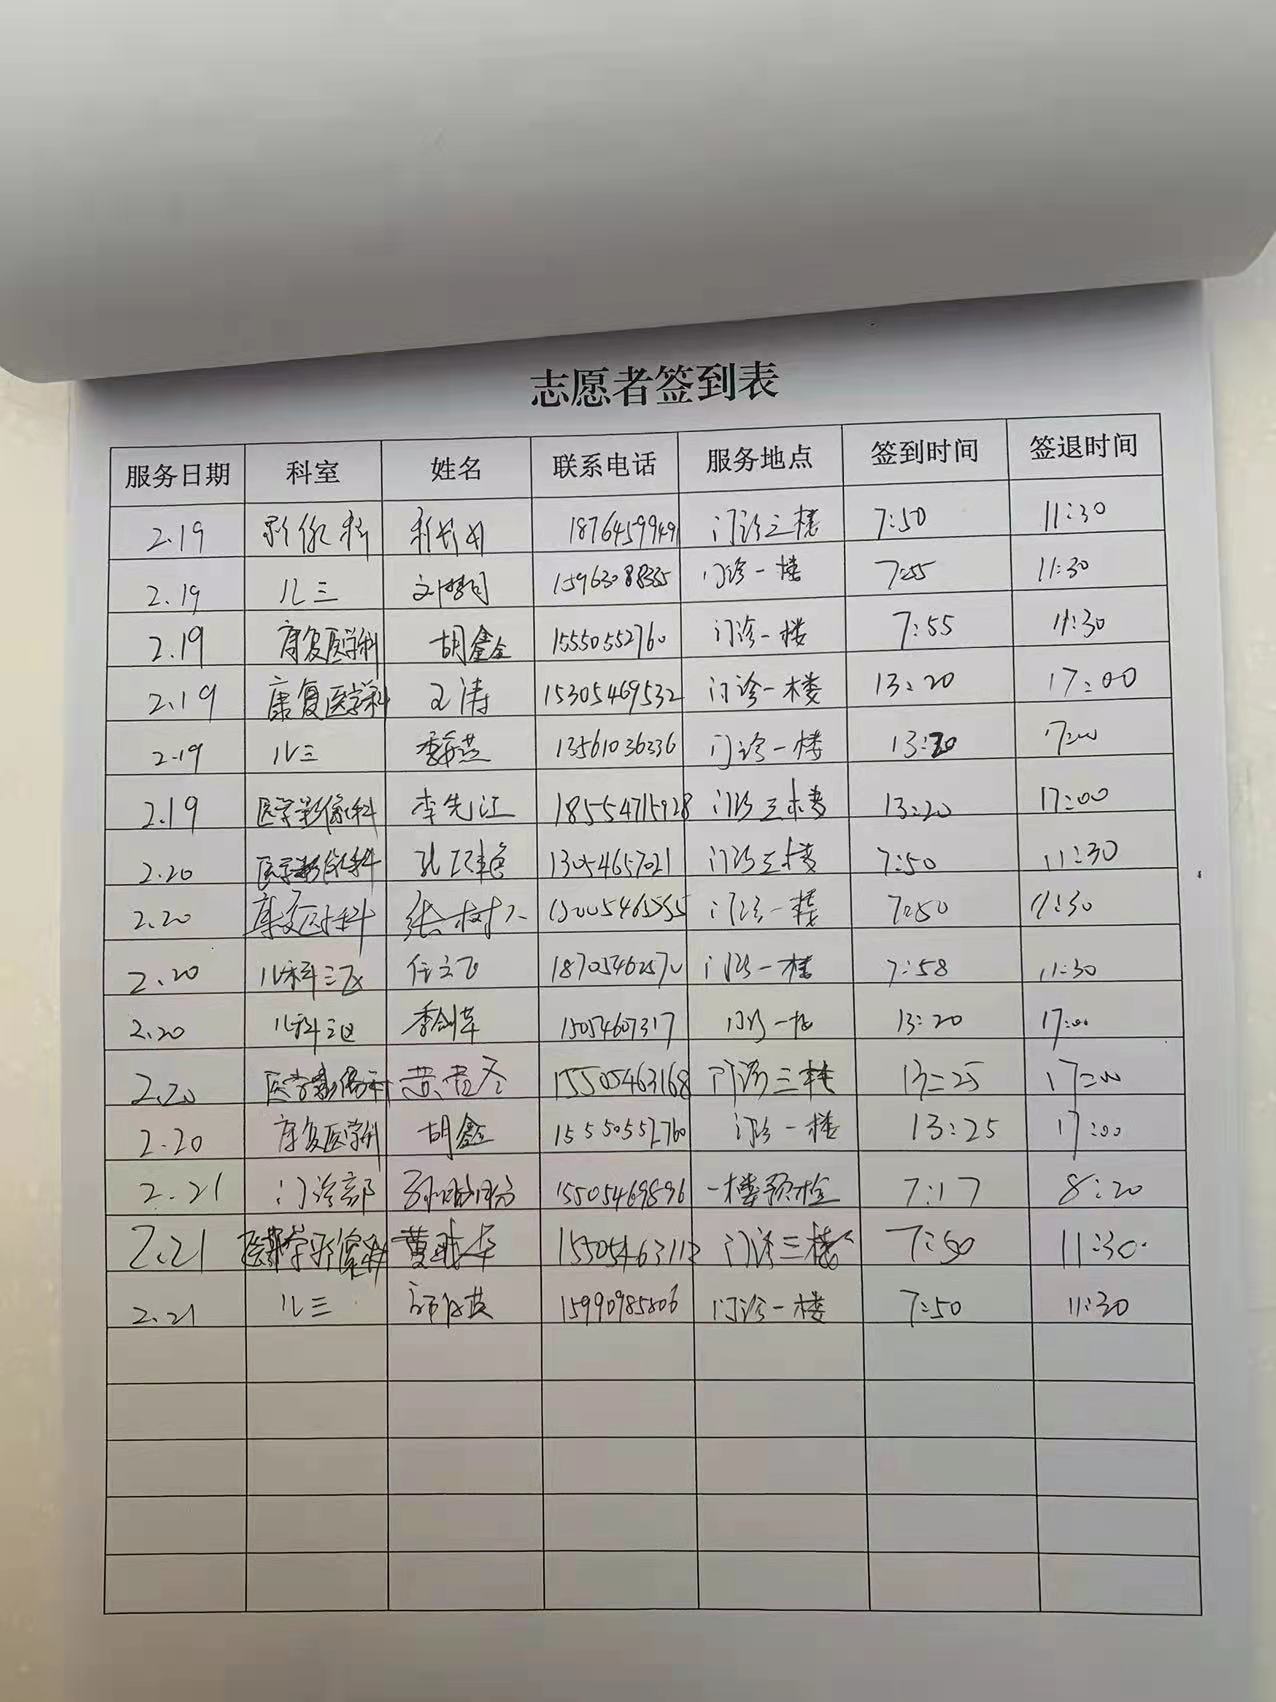 志愿者签到表
服务日期 科室 姓名 联系电话 服务地点 签到时间 签退时间
2.19 影像科 18764599491 门诊三楼 7:50 11:30
2.19 儿三 15963088335 门诊一楼 7:55 11:30
2.19 康复医学科 胡鑫 15550552760 门诊一楼 7:55 11:30
2.19 康复医学科 王涛 15305469532 门诊一楼 13:20 17:00
2.19 儿三 13561036336 门诊一楼 13:20 17:00
2.19 医学影像科 李先江 18554715928 门诊三楼 13:20 17:00
2.20 医学影像科 13054657021 门诊三楼 7:50 11:30
2.20 张树 门诊一楼 7:50 11:30
2.20 儿科三 任立飞 18705462570 门诊一楼 7:58 11:30
2.20 儿科三 15054607317 门诊一 13:20 17:00
2.20 医学影像科 15505463168 门诊三楼 13:25 17:00
2.20 康复医学科 胡鑫 15550552760 门诊一楼 13:25 17:00
2.21 门诊部 15505469896 一楼预检 7:17 8:20
2.21 医学影像科 15505463112 门诊三楼 7:50 11:30
2.21 儿三 15990985806 门诊一楼 7:50 11:30